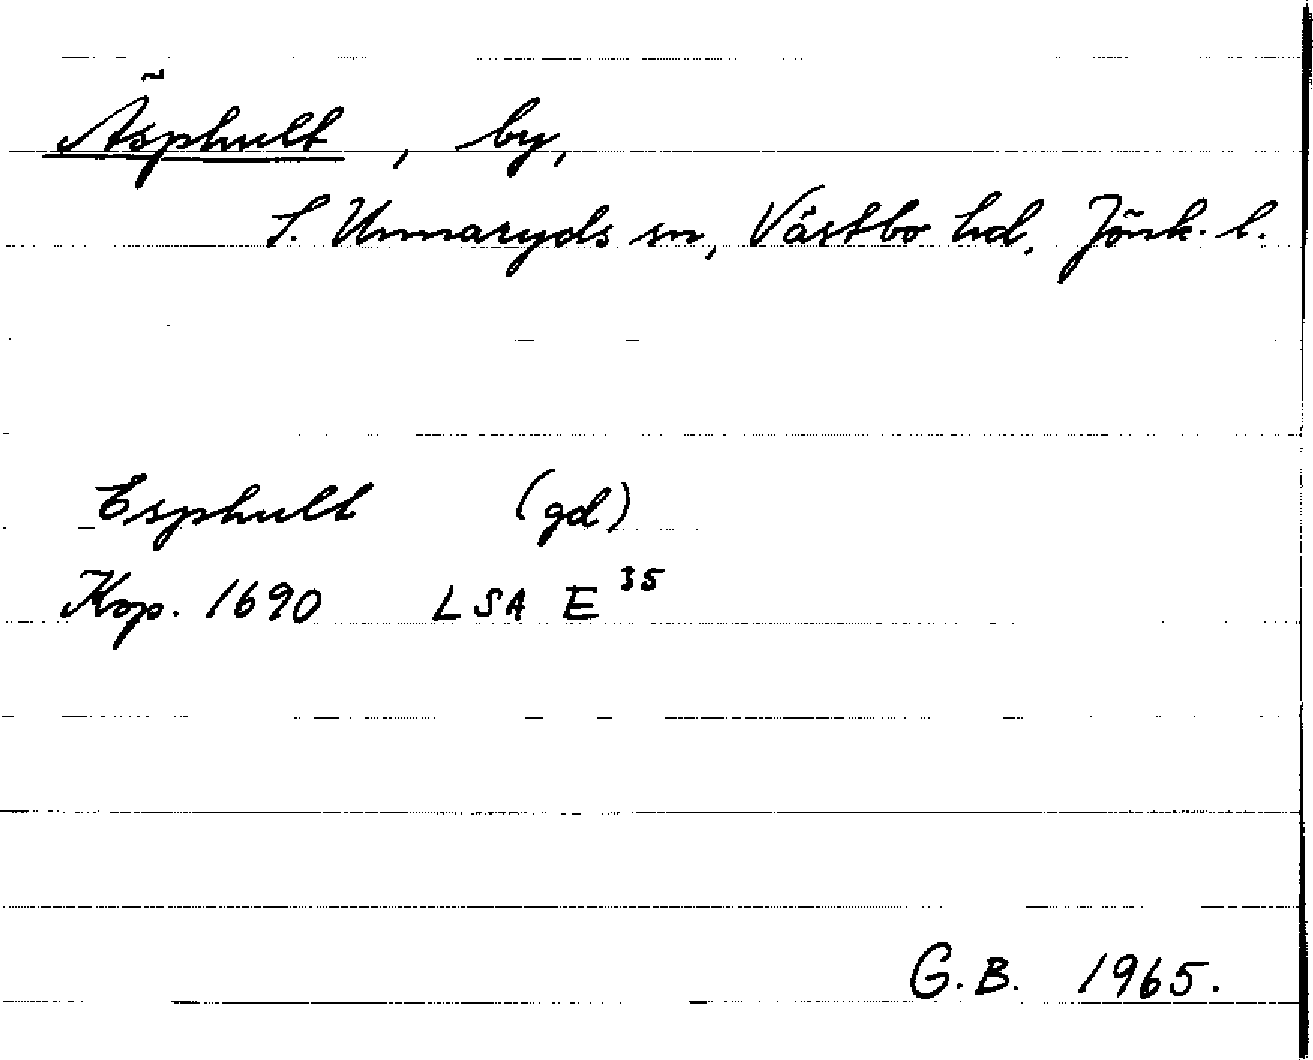 Äsphult, by,
S. Unnaryds sn, Västbo hd. Jönk. l.
Esphult (gd)
Kop. 1690 LSA E 35
G.B. 1965.